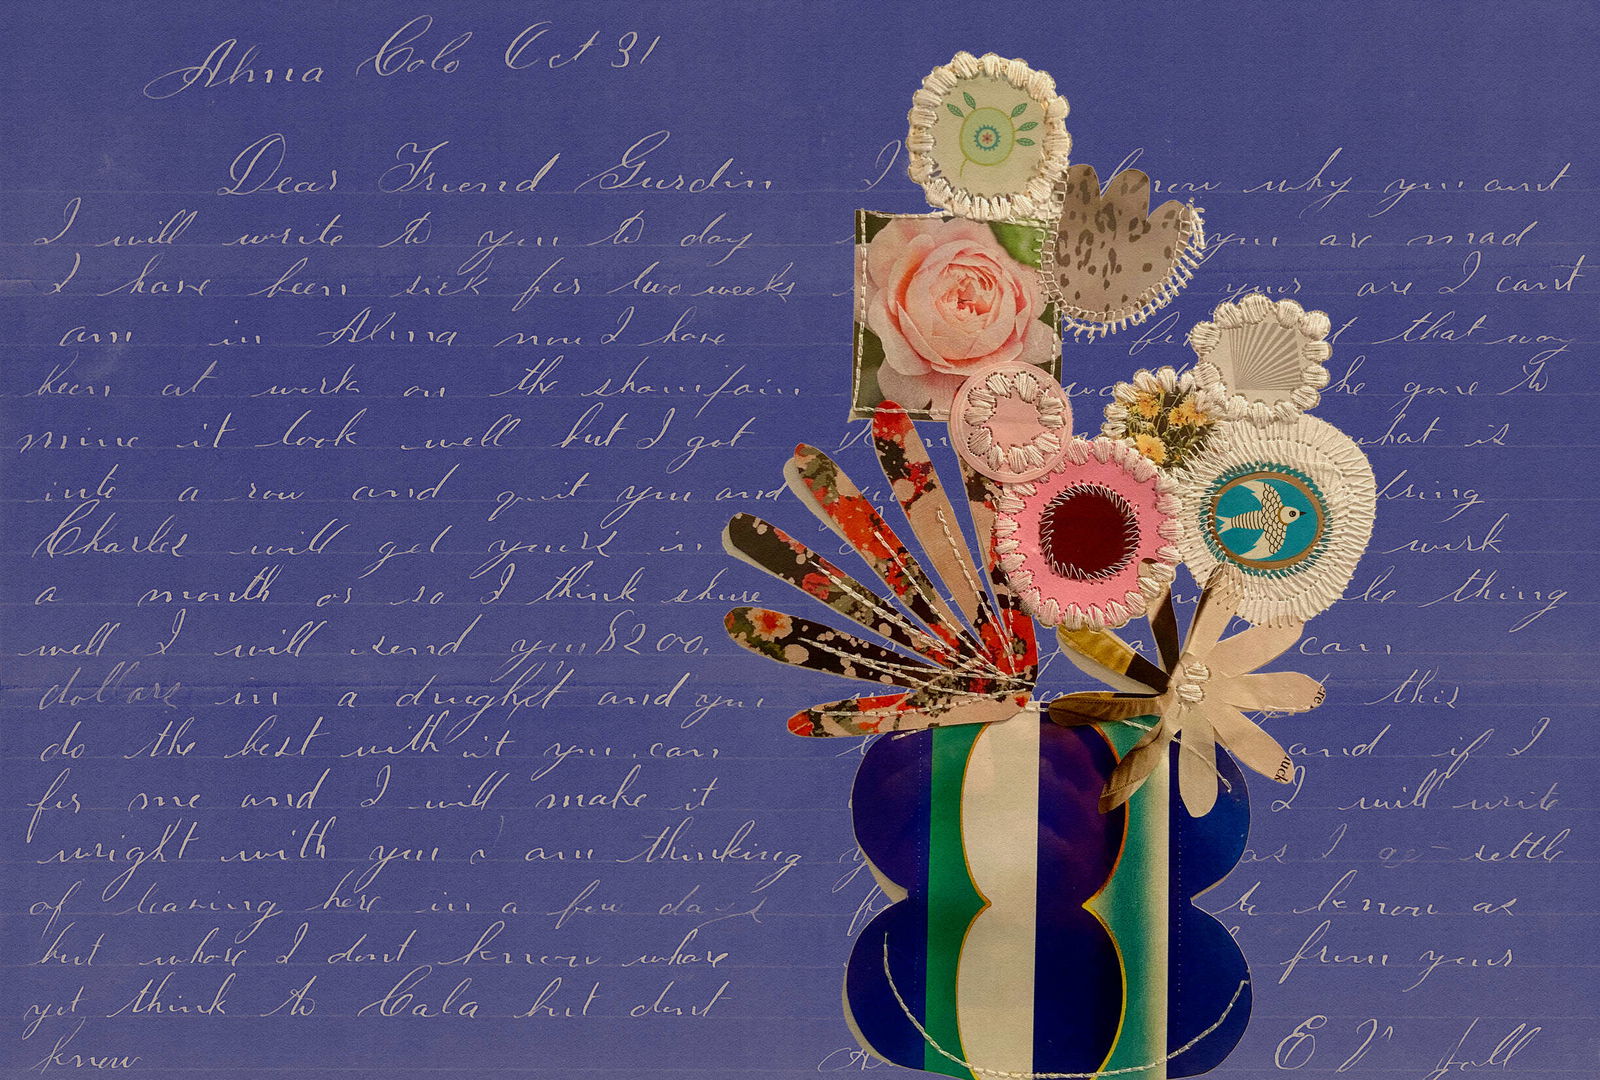 Alma Colo Oct 31
Dear Friend Gurdin
I will write to you to day
I have been sick for two weeks
am in Alma now I have
been at work on the
mine it look well but I got
into a row and quit you and
Charles will get yours in
a month or so I think shure
well I will send you $200,
dollars in a draught and you
do the best with it you can
for me and I will make it
wright with you I am thinking
of leaving here in a few days
but whare I dont know whare
yet think to Cala but dont
know
I know why you ant
you are mad
your are I cant
that way
he gone to
what is
bring
work
like thing
can
this
and if I
I will write
as I settle
to know as
from your
E V Hall
uck